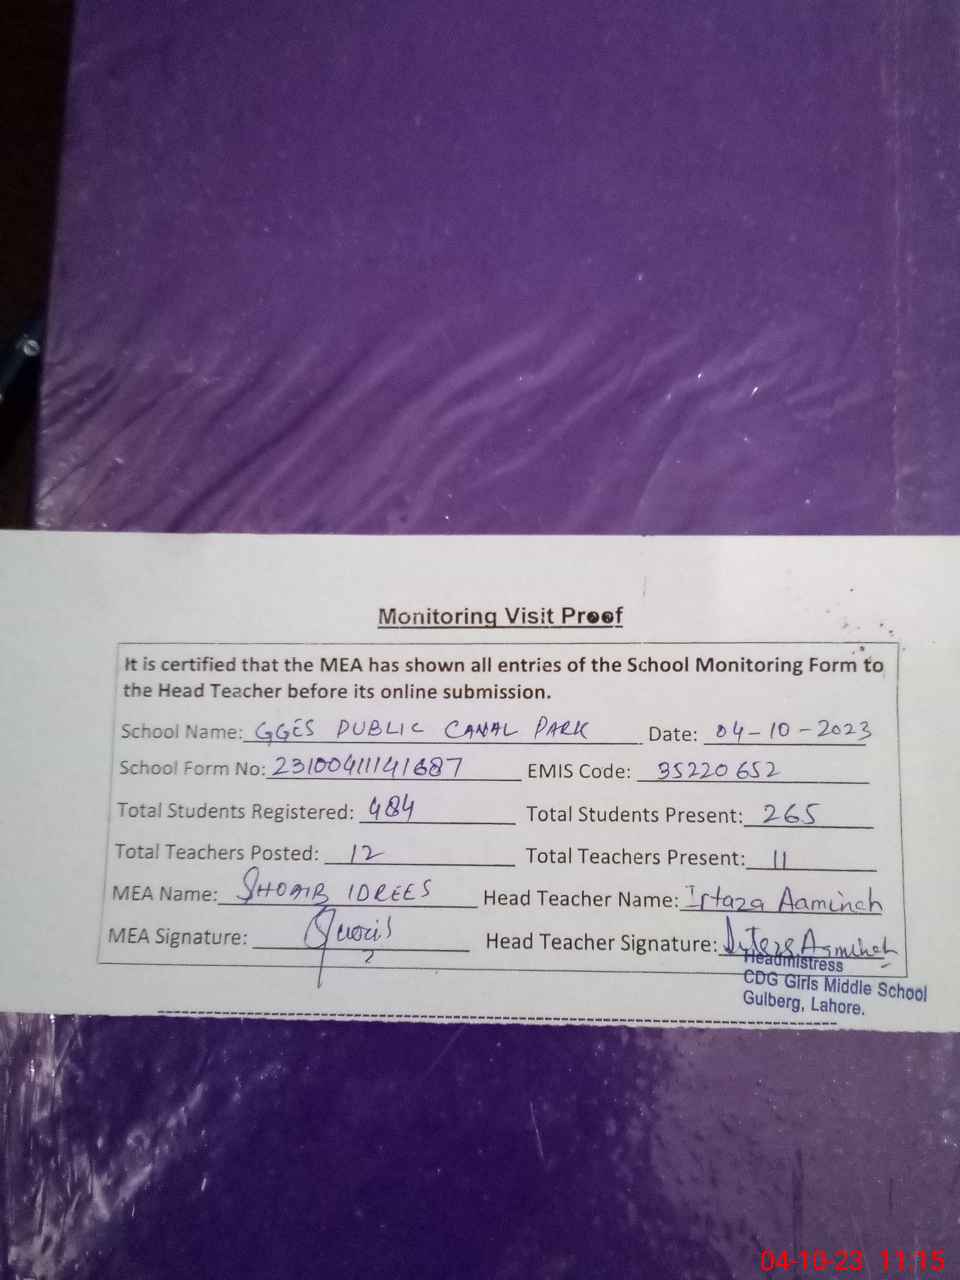 Monitoring Visit Proof
It is certified that the MEA has shown all entries of the School Monitoring Form to
the Head Teacher before its online submission.
School Name: GGES PUBLIC CANAL PARK Date: 04-10-2023
School Form No: 23100411141687 EMIS Code: 35220652
Total Students Registered: 484 Total Students Present: 265
Total Teachers Posted: 12 Total Teachers Present: 11
MEA Name: SHOAIB IDREES Head Teacher Name: Irtaza Aaminah
MEA Signature: Head Teacher Signature: Irtaza Aaminah
Headmistress
CDG Girls Middle School
Gulberg, Lahore.
04-10-23 11:15